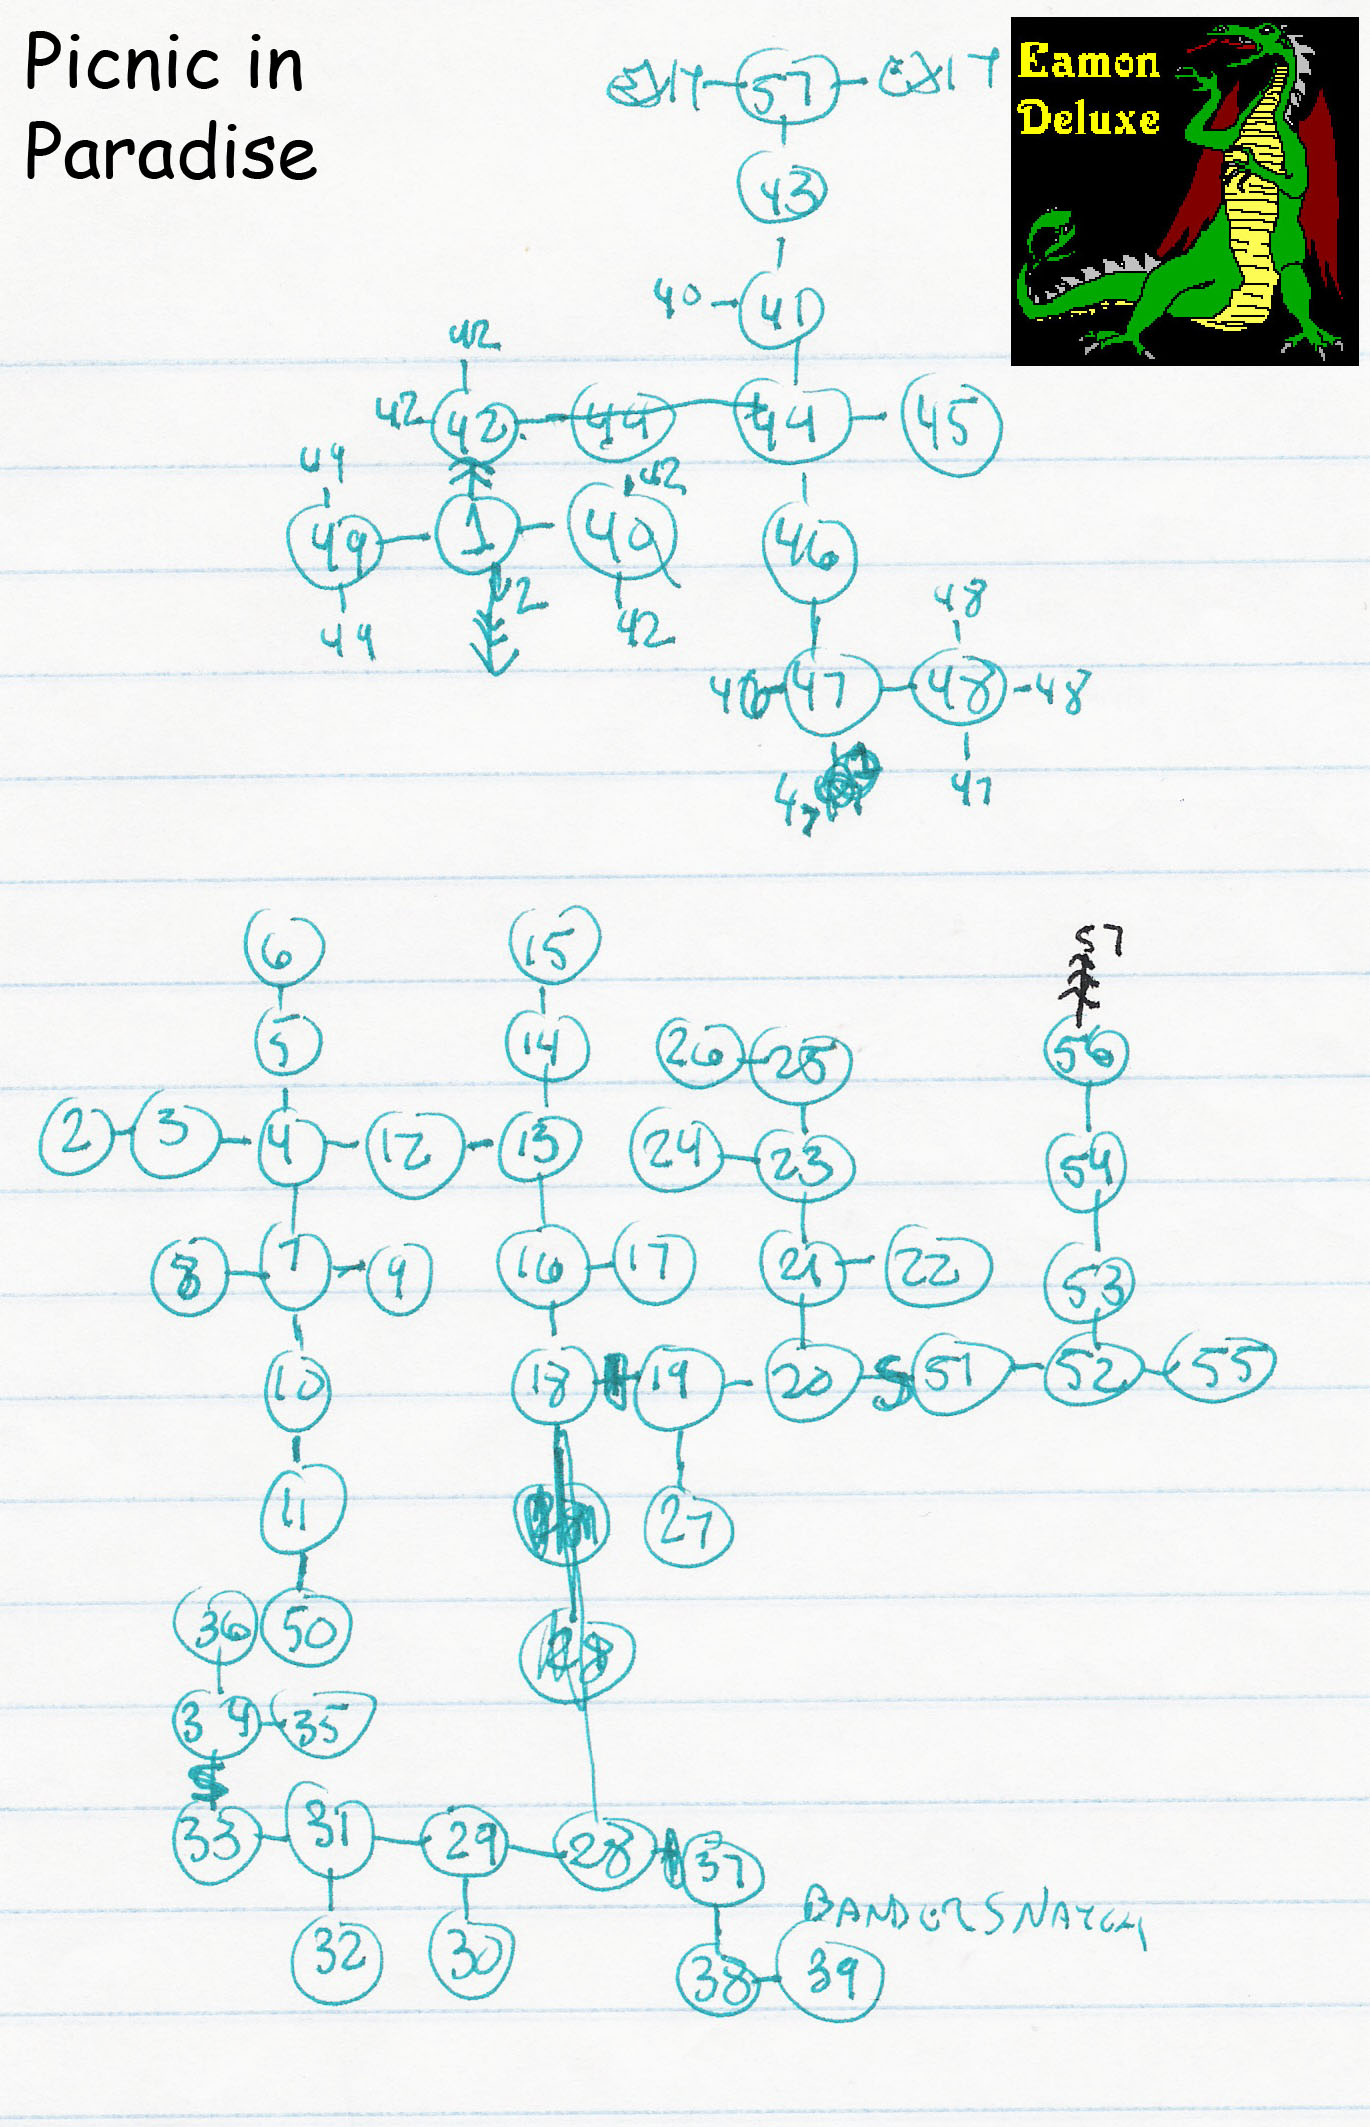 Picnic in
Paradise
Eamon
Deluxe
EXIT 57 EXIT
43
40 41
42
42 42 44 44 45
49
49 1 40 42
46
2
49 42
48
46 47 48 48
47 47
6 15
57
5 14 26 25 56
2 3 4 12 13 24 23 54
8 7 9 16 17 21 22 53
10 18 19 20 S 51 52 55
11 27
36 50
28
34 35
S
33 31 29 28 37
BANDERSNATCH
32 30 38 39